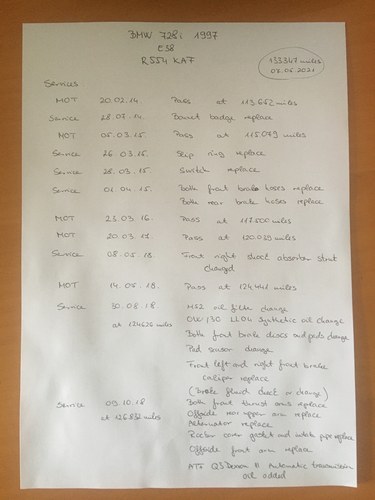 BMW 728i 1997
E38
R554 KAF
133347 miles
03.05.2021
Services
MOT 20.02.14. Pass at 113.662 miles
Service 28.03.14. Bonnet badge replace
MOT 05.03.15. Pass at 115.079 miles
Service 26.03.15. Slip ring replace
Service 28.03.15. Switch replace
Service 01.04.15. Both front brake hoses replace
Both rear brake hoses replace
MOT 23.03.16. Pass at miles
MOT 20.03.17. Pass at 120.039 miles
Service 08.05.18 Front right shock absorber strut
changed
MOT 14.05.18. Pass at 124.441 miles
Service 30.08.18 oil filter change
at 124626 miles LL04 Synthetic oil change
Both front brake discs and pads change
Pad sensor change
Front left and right front brake
caliper replace
(Brake fluid check or change)
Service 09.10.18 Both front thrust arms replace
at miles Offside rear upper arm replace
Alternator replace
Rocker cover gasket and intake pipe replace
Offside front arm replace
ATs Dexron II Automatic transmission
oil added